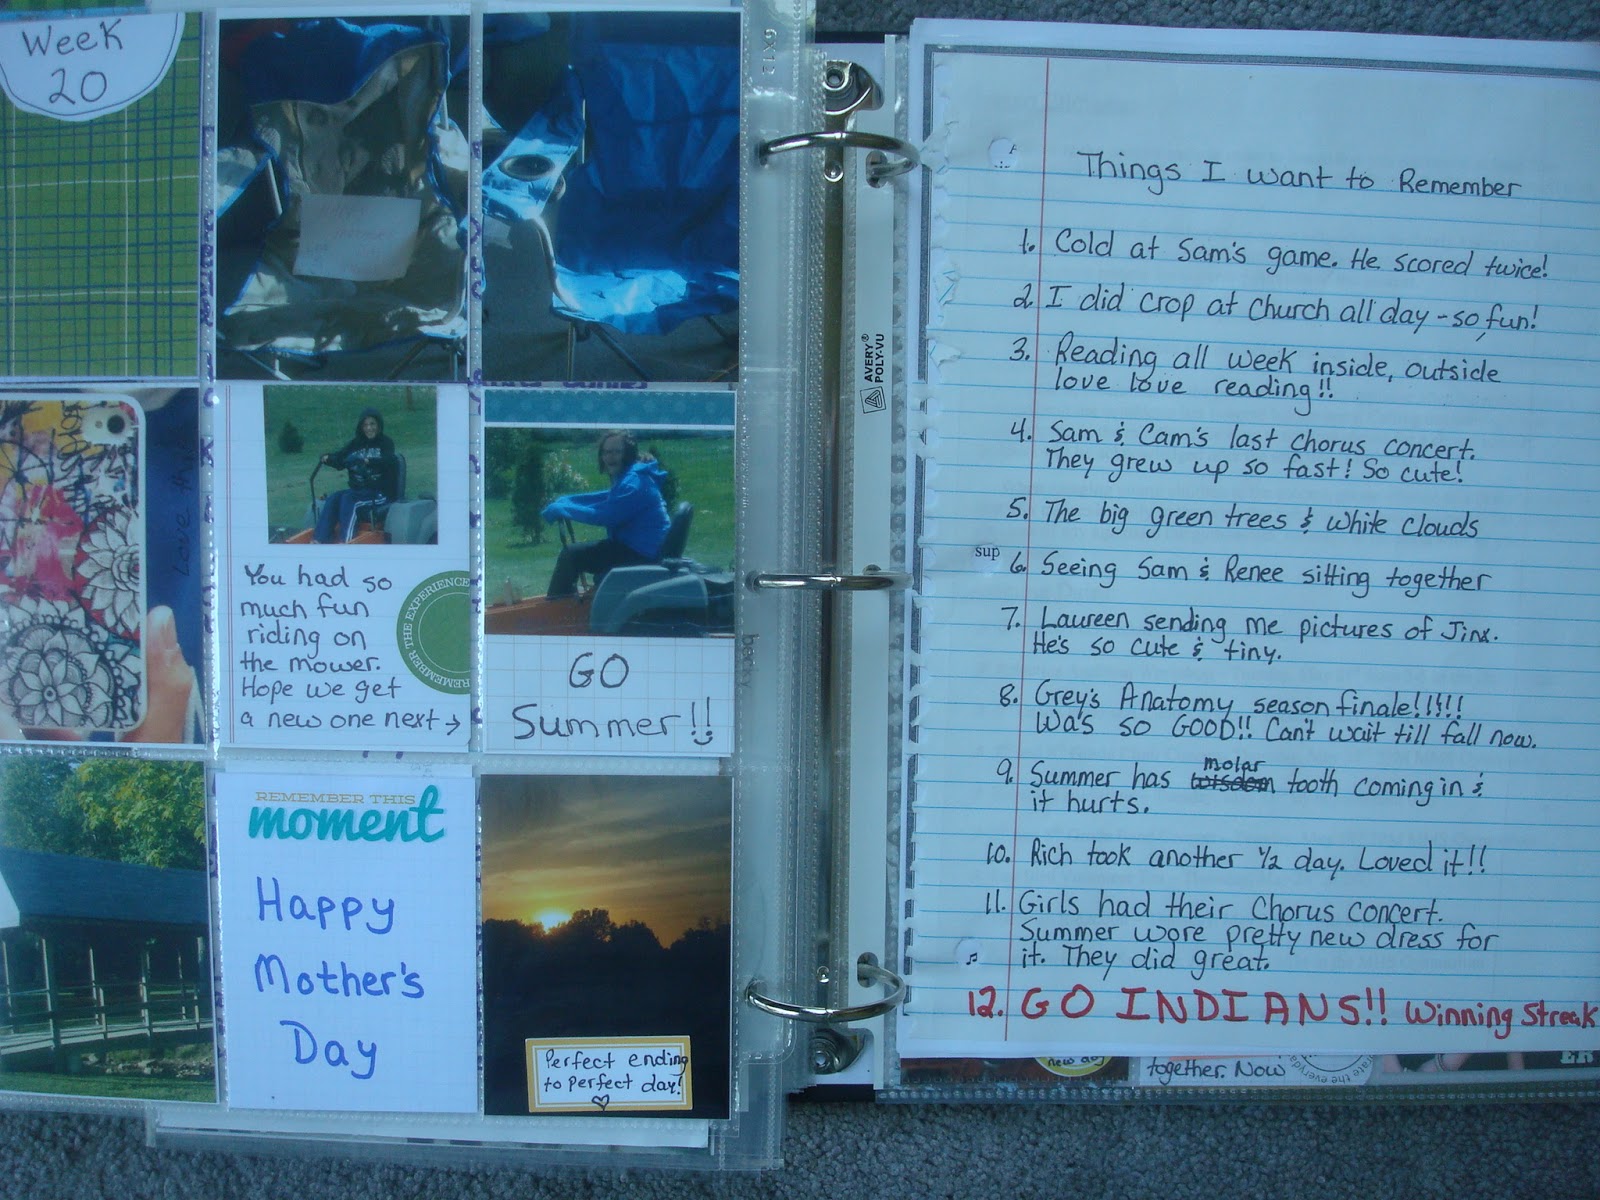 Week
20
Love this
You had so
much fun
riding on
the mower.
Hope we get
a new one next →
REMEMBER THE EXPERIENCE
REMEMBER
GO
Summer!!
REMEMBER THIS
moment
Happy
Mother's
Day
Perfect ending
to perfect day!
AVERY®
POLY-VU
Things I want to Remember
1. Cold at Sam's game. He scored twice!
2. I did crop at church all day - so fun!
3. Reading all week inside, outside
love love reading!!
4. Sam & Cam's last chorus concert.
They grew up so fast! So cute!
5. The big green trees & white clouds
sup
6. Seeing Sam & Renee sitting together
7. Laureen sending me pictures of Jinx.
He's so cute & tiny.
8. Grey's Anatomy season finale!!!!!
Was so GOOD!! Can't wait till fall now.
9. Summer has wisdom molar tooth coming in &
it hurts.
10. Rich took another 1/2 day. Loved it!!
11. Girls had their Chorus concert.
Summer wore pretty new dress for
it. They did great.
12. GO INDIANS!! Winning Streak
new
together. Now
the everyday
ER